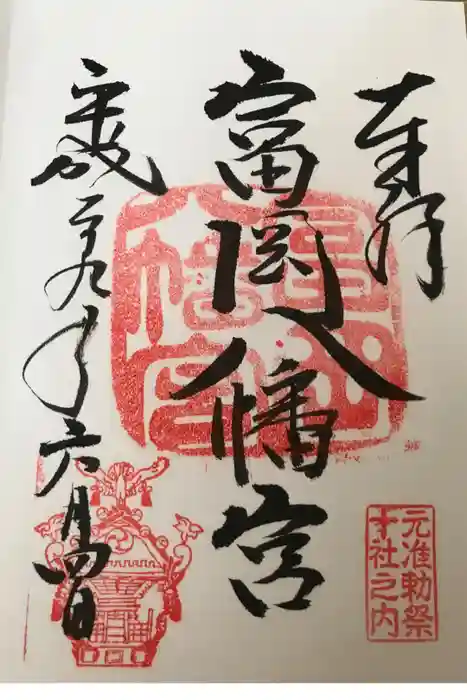 奉拝
富岡八幡宮
平成二十九年六月四日
富岡八幡宮
元准勅祭
十社之内